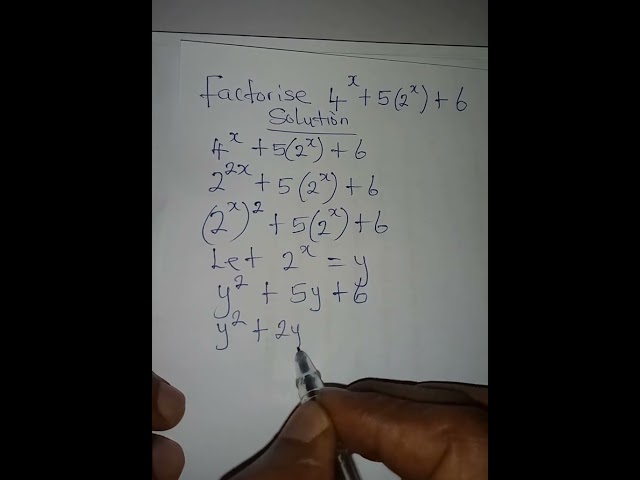 Factorise 4^x + 5(2^x) + 6
Solution
4^x + 5(2^x) + 6
2^2x + 5(2^x) + 6
(2^x)^2 + 5(2^x) + 6
Let 2^x = y
y^2 + 5y + 6
y^2 + 2y